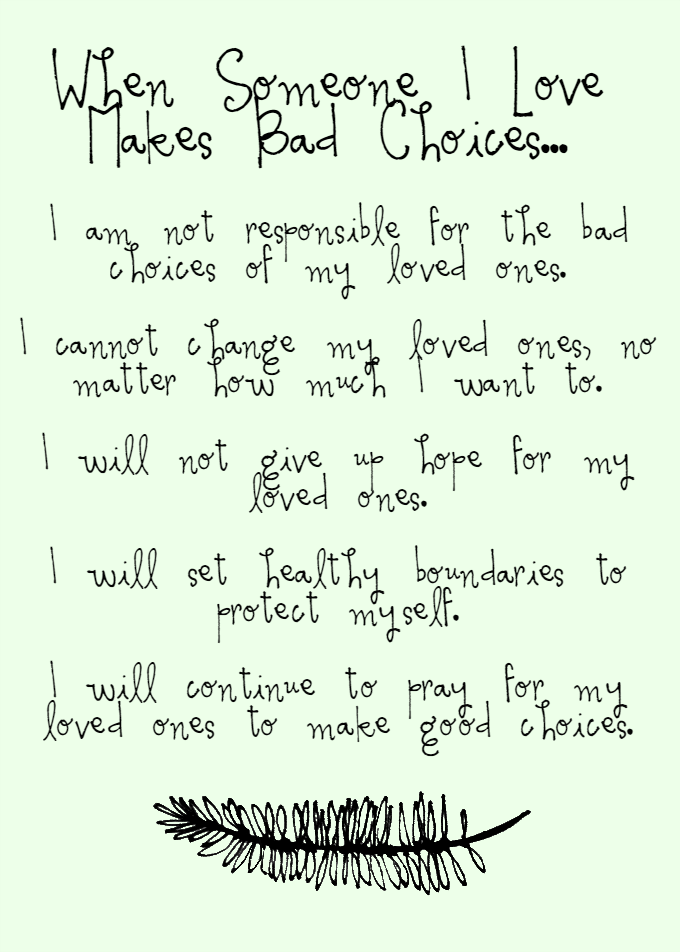 When Someone I Love
Makes Bad Choices...
I am not responsible for the bad
choices of my loved ones.
I cannot change my loved ones, no
matter how much I want to.
I will not give up hope for my
loved ones.
I will set healthy boundaries to
protect myself.
I will continue to pray for my
loved ones to make good choices.